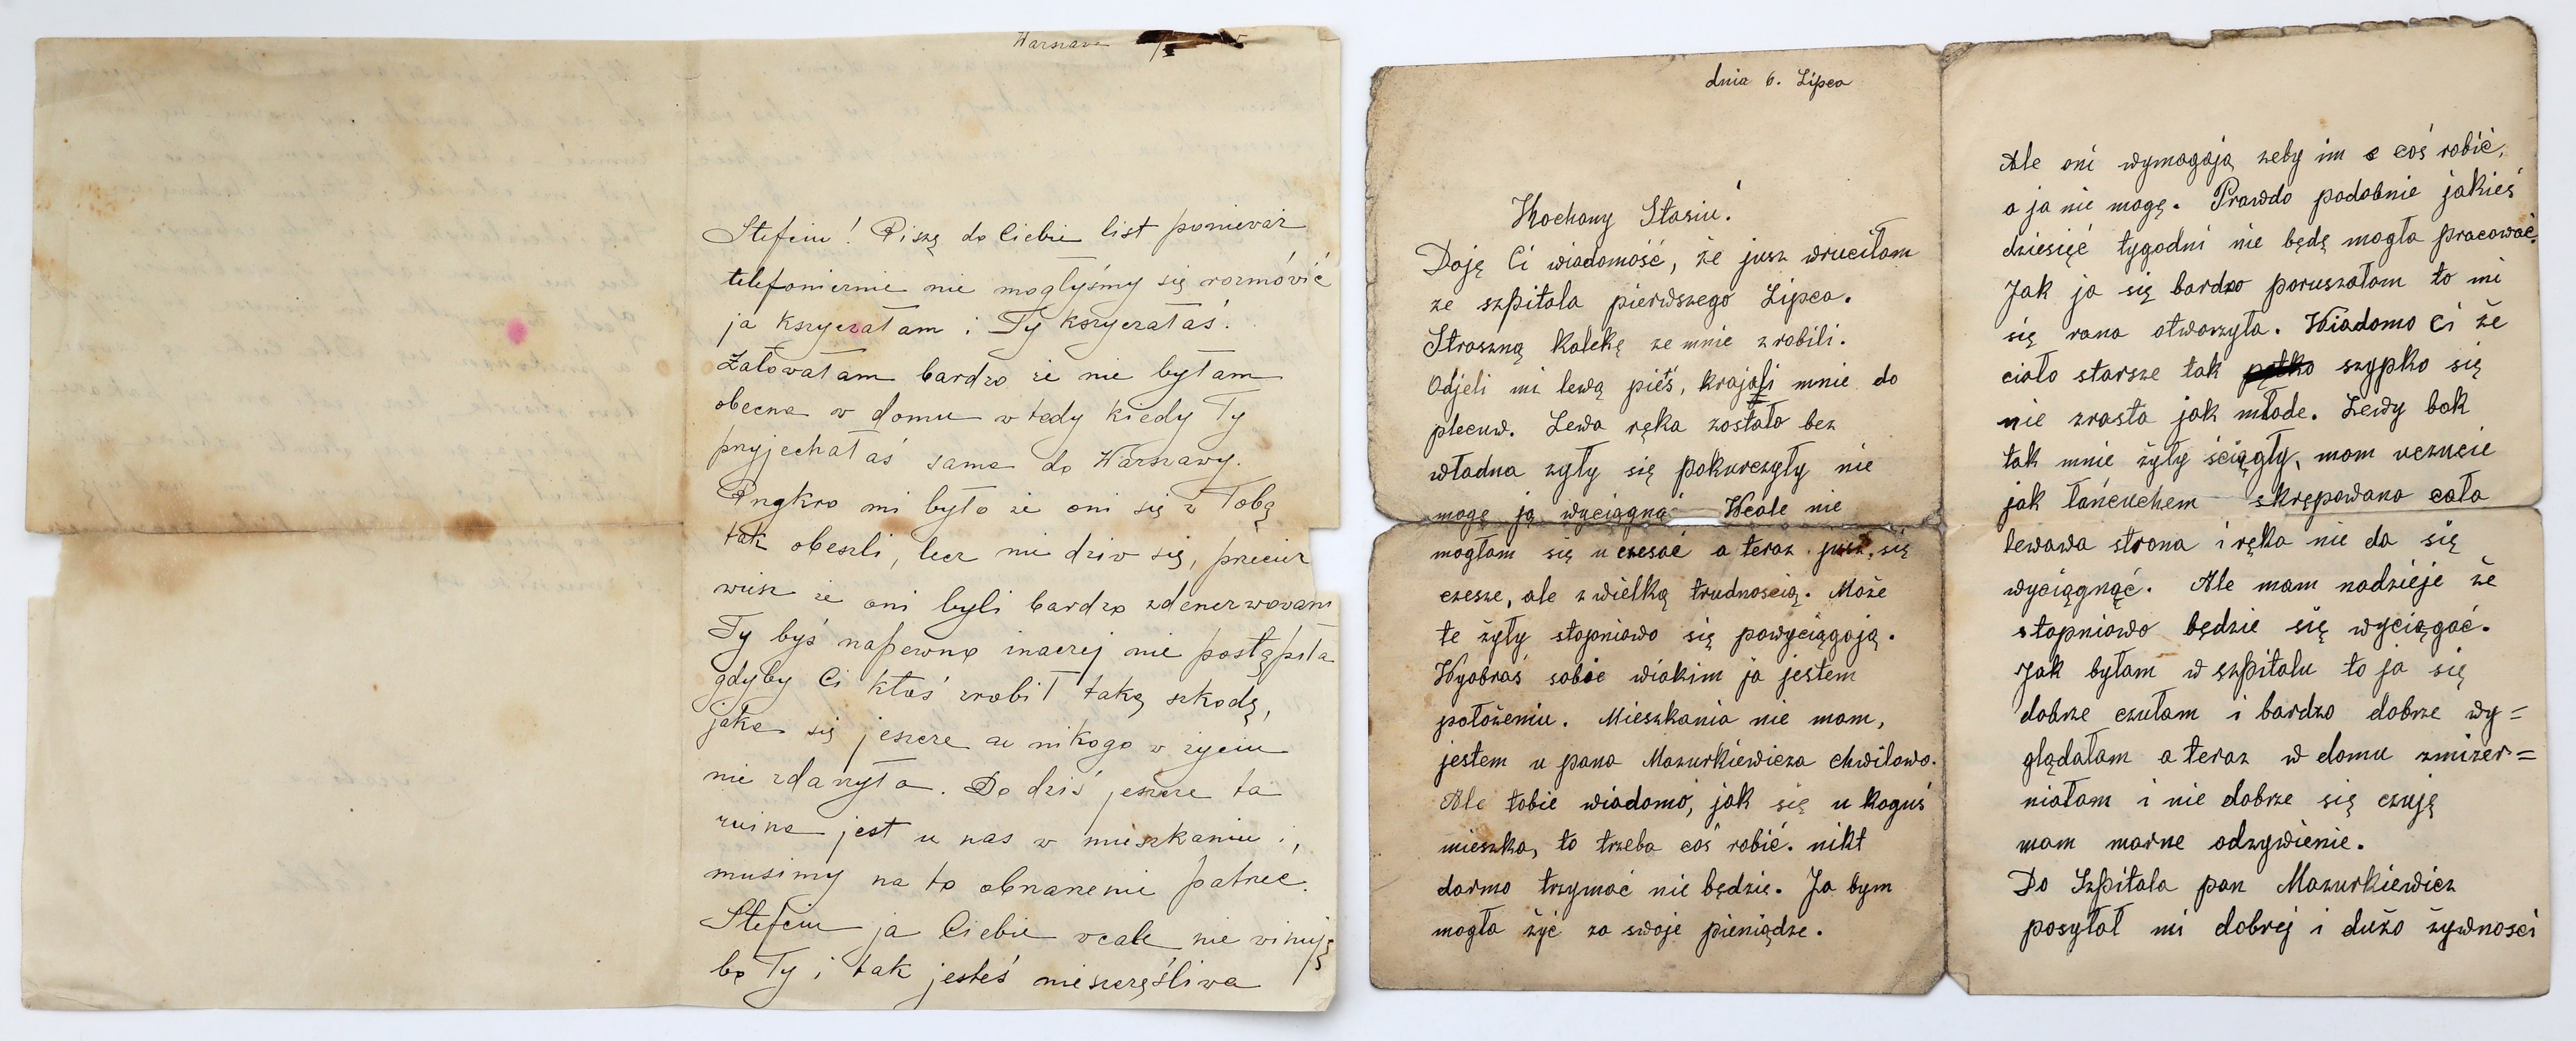 Warszawa
Stefciu! Piszę do Ciebie list ponieważ
telefonicznie nie mogłyśmy się rozmówić
ja kszyczałam i Ty kszyczałaś.
Żałowałam bardzo że nie byłam
obecna w domu w tedy kiedy Ty
przyjechałaś sama do Warszawy.
Przykro mi było że oni się z Tobą
tak obeszli, lecz nie dziw się, przecież
wisz że oni byli bardzo zdenerwowani
Ty byś napewno inaczej nie postąpiła
gdyby Ci ktoś zrobił taką szkodę,
jaka się jeszcze u nikogo w życiu
nie zdarzyła. Do dziś jeszcze ta
ruina jest u nas w mieszkaniu i,
musimy na to patrzec.
Stefciu ja Ciebie wcale nie winuję
bo Ty i tak jesteś nieszczęśliwa
dnia 6. Lipca
Kochany Stasiu!
Daję Ci wiadomość, że jusz wruciłam
ze szpitala pierwszego Lipca.
Straszną kalekę ze mnie zrobili.
Odjeli mi lewą pierś, krajali mnie do
plecuw. Lewa ręka została bez
władna żyły się pokurczyły nie
mogę ją wyciągną Wcale nie
mogłam się uczesać a teraz jusz się
czesze, ale z wielką trudnoscią. Może
te żyły stopniowo się powyciągają.
Wyobraś sobie wiakim ja jestem
położeniu. Mieszkania nie mam,
jestem u pana Mazurkiewicza chwilowo.
Ale tobie wiadomo, jak się u koguś
mieszka, to trzeba coś robić. nikt
darmo trzymać nie będzie. Ja bym
mogła żyć za swoje pieniądze.
Ale oni wymagają zeby im coś robić,
a ja nie mogę. Prawdo podobnie jakieś
dziesięć tygodni nie będę mogła pracować.
Jak ja się bardzo poruszałam to mi
się rana otwarzyła. Wiadomo Ci że
ciało starsze tak szypko się
nie zrasta jak młode. Lewy bok
tak mnie żyły ściągły, mam uczucie
jak łańcuchem skrępowana cała
lewawa strona i ręka nie da się
wyciągnąć. Ale mam nadzieje że
stopniowo będzie się wyciągać.
Jak byłam w szpitalu to ja się
dobrze czułam i bardzo dobrze wy=
glądałam a teraz w domu zmizer=
niałam i nie dobrze się czuję
mam marne odzywienie.
Do Szpitala pan Mazurkiewicz
posyłał mi dobrej i dużo żywnosci